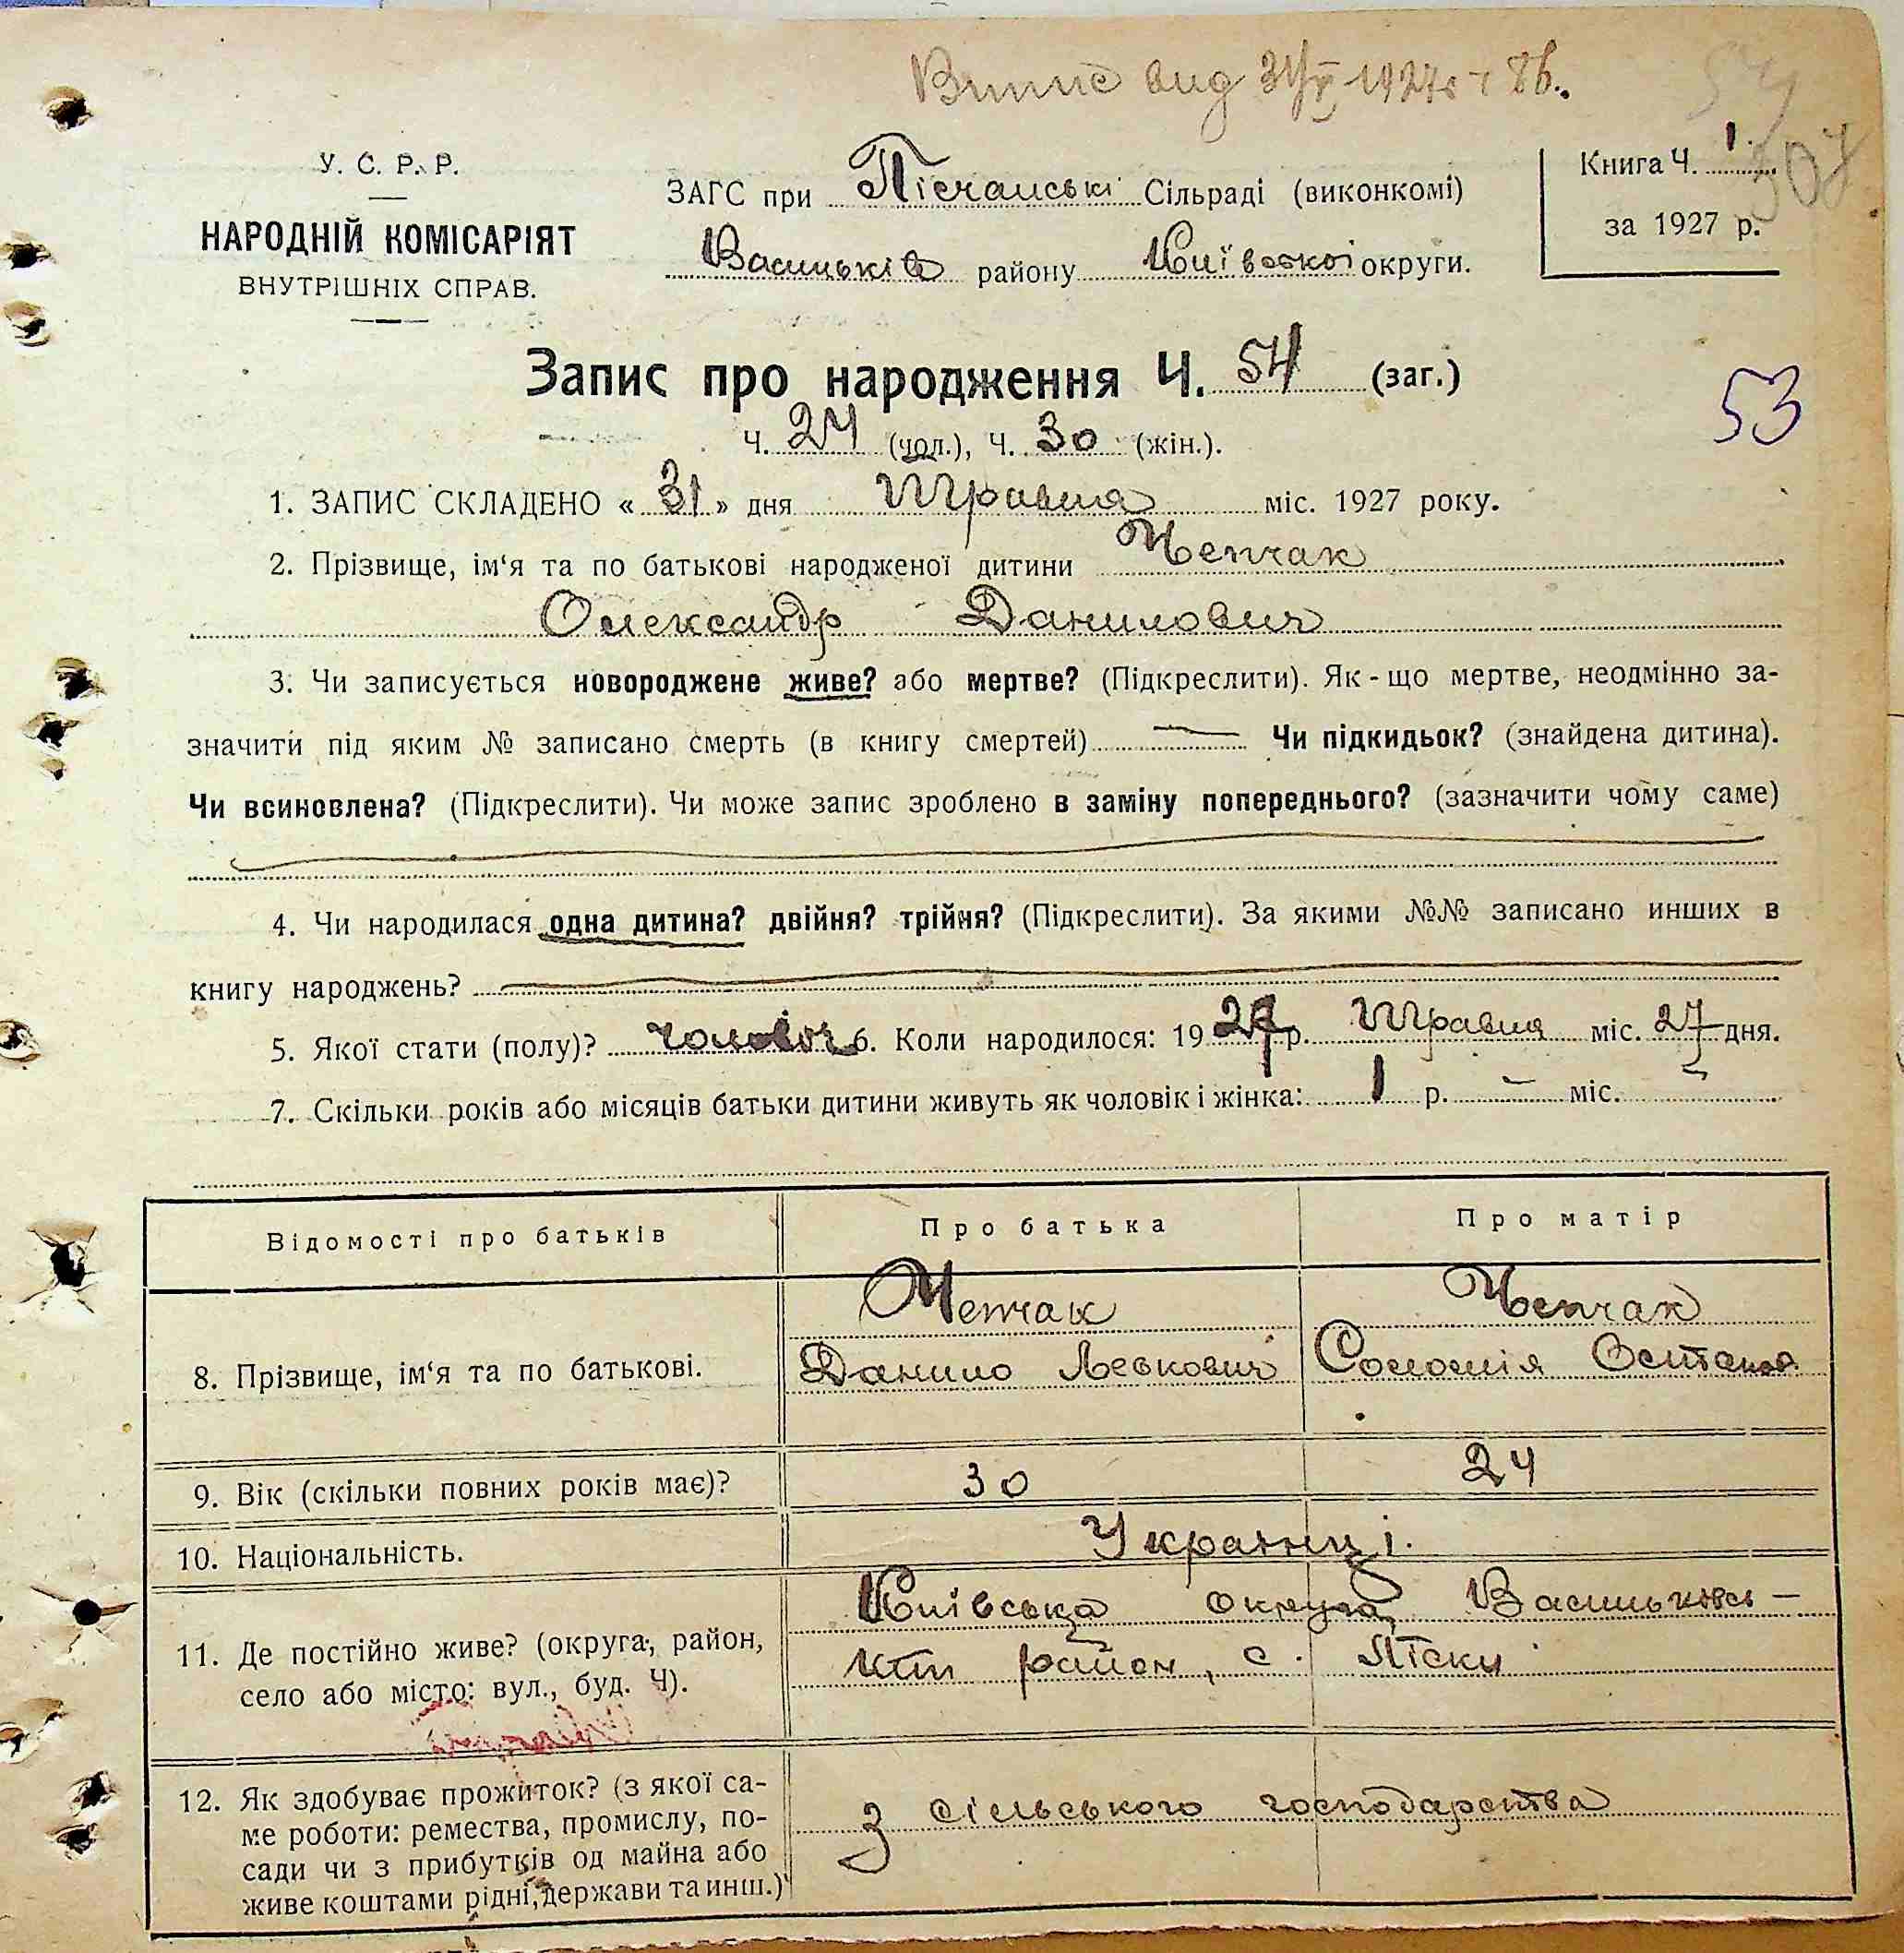 Випис вид 31/V 1927 г ч 86.
У. С. Р. Р.
НАРОДНІЙ КОМІСАРІЯТ
ВНУТРІШНІХ СПРАВ.
ЗАГС при Пісчанські Сільраді (виконкомі)
Васильків району Київської округи.
Книга Ч. 1.
за 1927 р.
Запис про народження Ч. 54 (заг.)
53
Ч. 24 (чол.), Ч. 30 (жін.).
1. ЗАПИС СКЛАДЕНО « 31 » дня Травня міс. 1927 року.
2. Прізвище, ім‘я та по батькові народженої дитини Чепчак
Олександр Данилович
3. Чи записується новороджене живе? або мертве? (Підкреслити). Як-що мертве, неодмінно за-
значити під яким № записано смерть (в книгу смертей) — Чи підкидьок? (знайдена дитина).
Чи всиновлена? (Підкреслити). Чи може запис зроблено в заміну попереднього? (зазначити чому саме)
4. Чи народилася одна дитина? двійня? трійня? (Підкреслити). За якими №№ записано инших в
книгу народжень?
5. Якої стати (полу)? чоловіч 6. Коли народилося: 1927 р. Травня міс. 27 дня.
7. Скільки років або місяців батьки дитини живуть як чоловік і жінка: 1 р. – міс.
Відомості про батьків Про батька Про матір
8. Прізвище, ім‘я та по батькові.
Чепчак Чепчак
Данило Левкович Соломія Остапов.
9. Вік (скільки повних років має)? 30 24
10. Національність. Українці.
11. Де постійно живе? (округа, район,
село або місто: вул., буд. Ч).
Київська округа, Васильковсь-
кий район, с. Піски
12. Як здобуває прожиток? (з якої са-
ме роботи: ремества, промислу, по-
сади чи з прибутків од майна або
живе коштами рідні, держави та инш.)
з сільського господарства